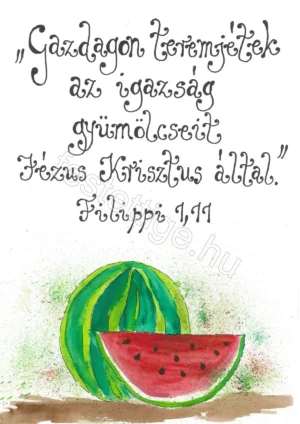 „Gazdagon teremjétek
az igazság
gyümölcseit
Jézus Krisztus által.”
Filippi 1,11
festettige.hu